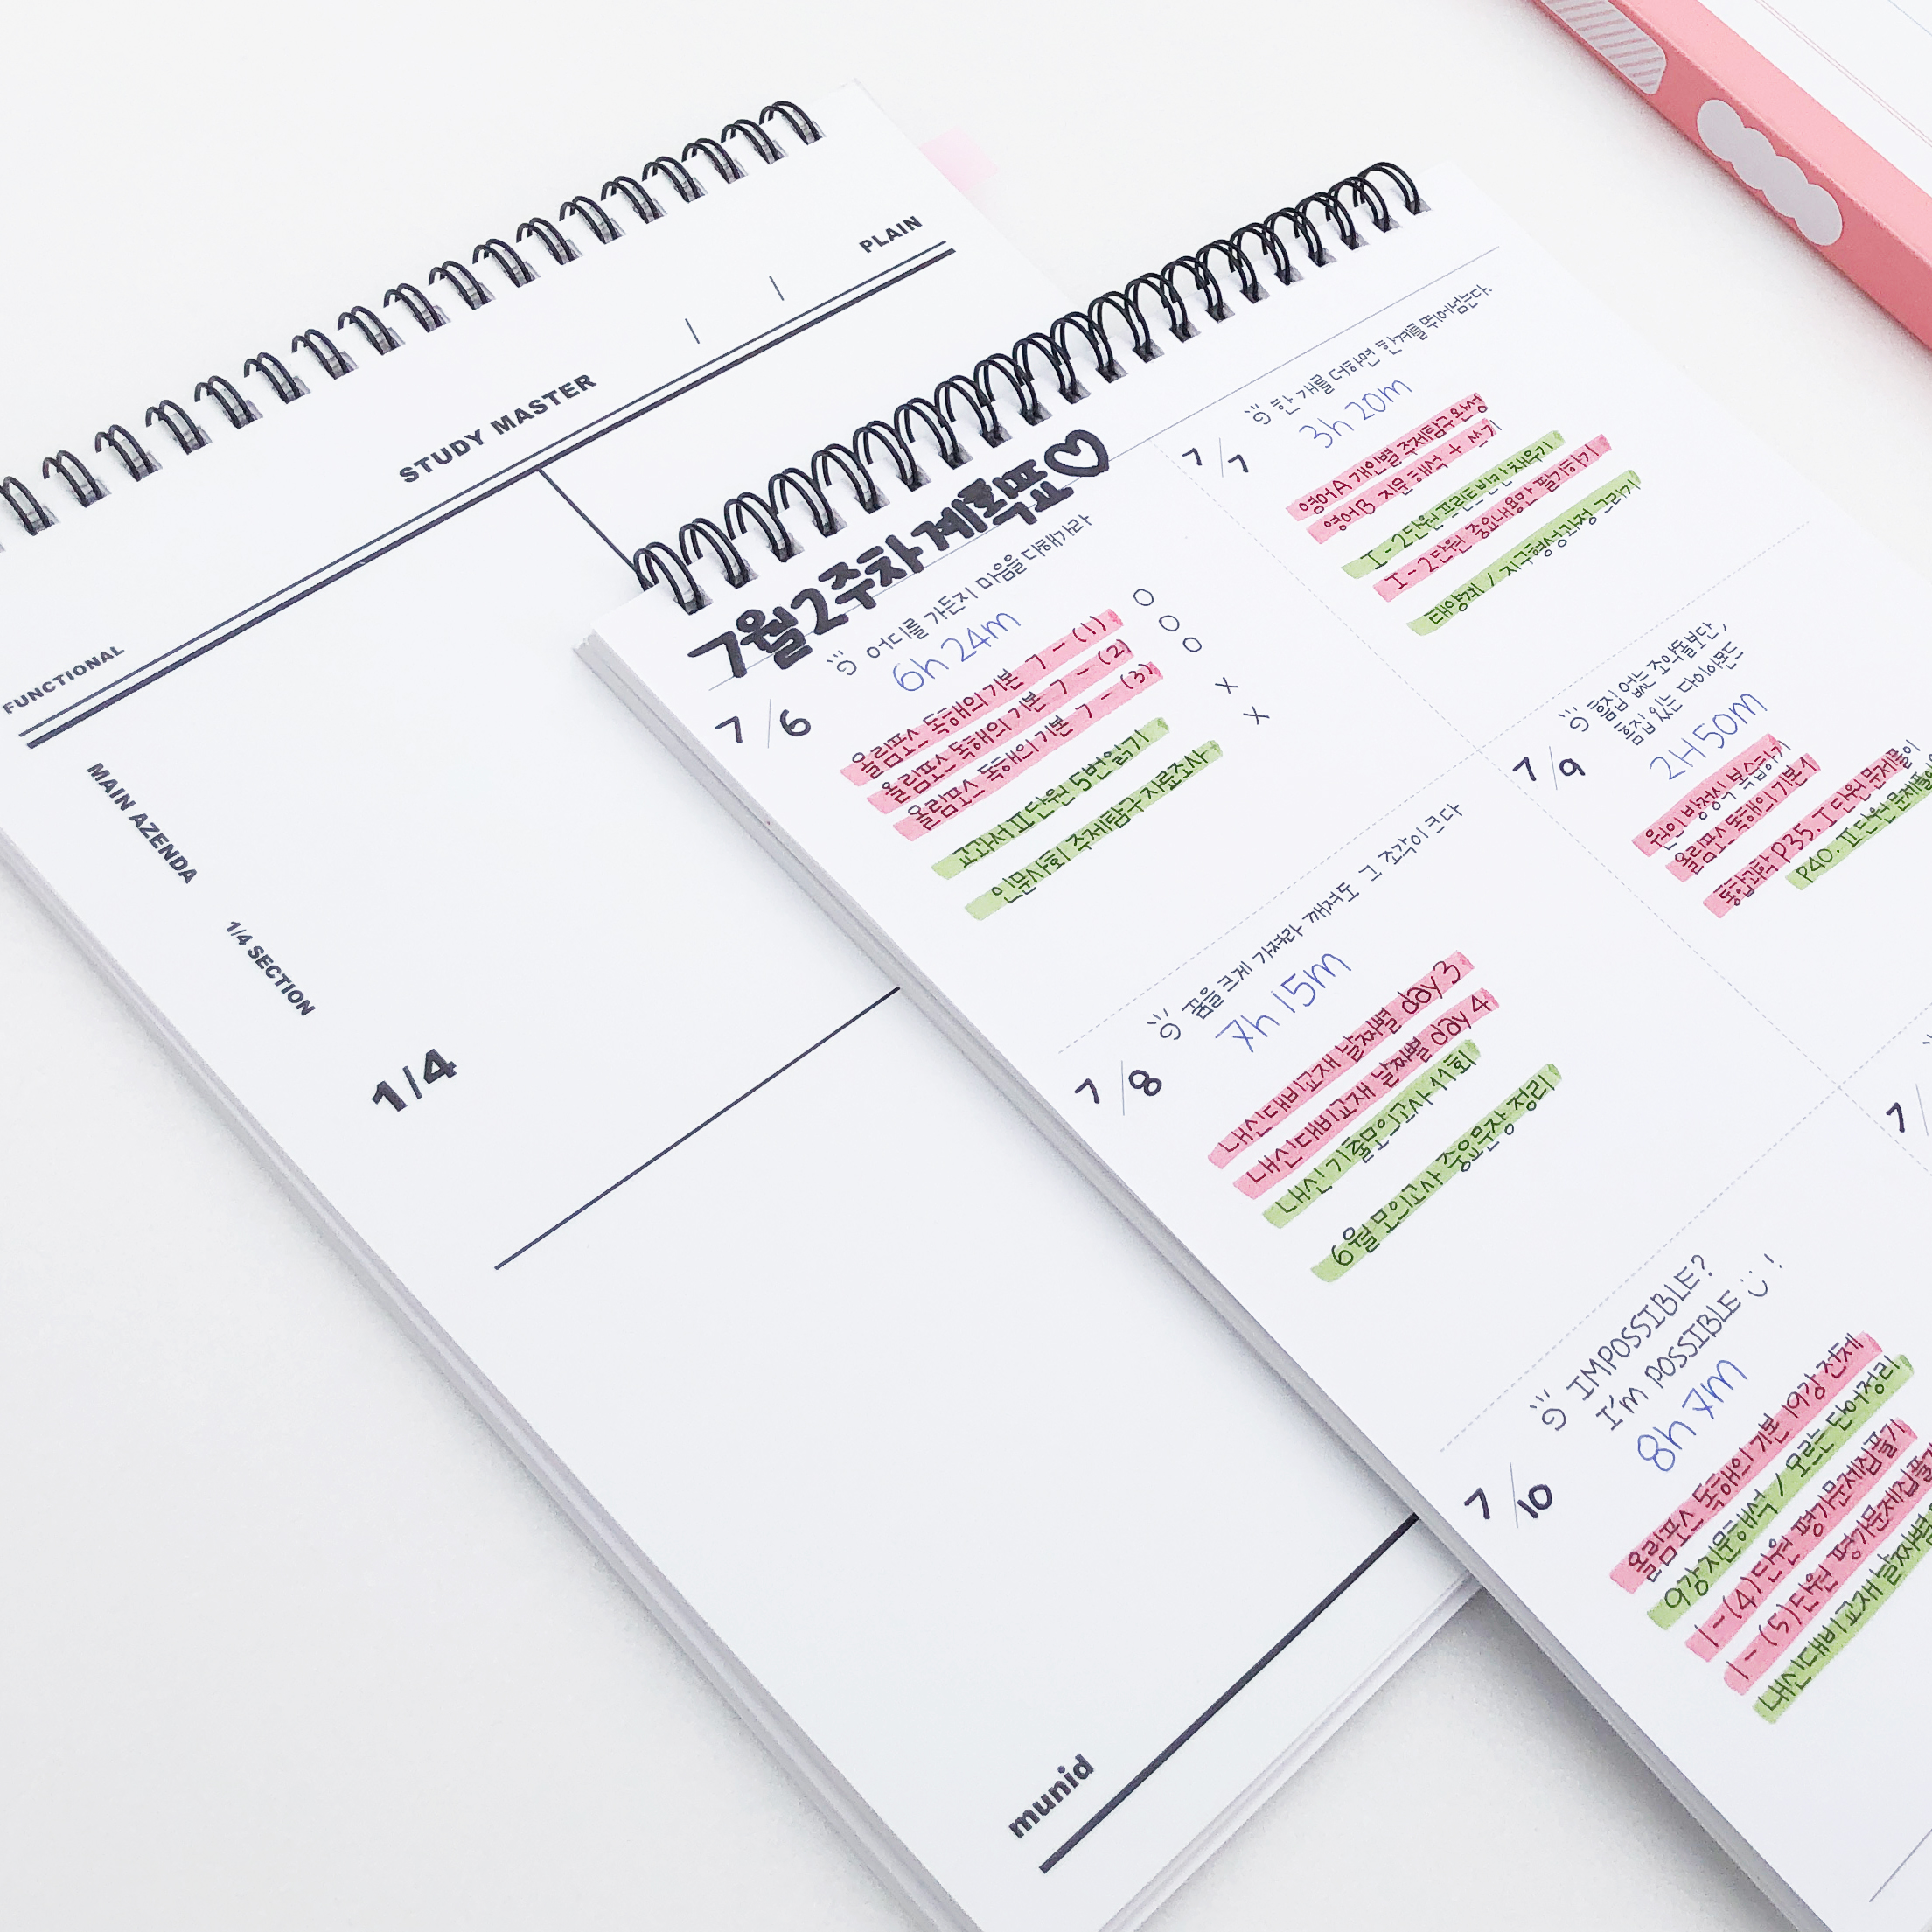 PLAIN
STUDY MASTER
FUNCTIONAL
MAIN AZENDA
1/4 SECTION
1/4
munid
7월 2주차 계획표♡
7/6
어디를 가든지 마음을 다해가라
6h 24m
올림포스 독해의 기본 7-(1) O
올림포스 독해의 기본 7-(2) O
올림포스 독해의 기본 7-(3) O
교과서 II 단원 5번 읽기 X
인문사회 주제탐구 자료조사 X
7/7
한 개를 더하면 한계를 뛰어넘는다.
3h 20m
영어A 개인별 주제탐구 완성
영어B 지문 해석 + 쓰기
I-2단원 프린트 빈칸 채우기
I-2단원 중요내용만 필기하기
태양계 / 지구형성과정 그리기
7/8
꿈을 크게 가져라 깨져도 그 조각이 크다
7h 15m
내신대비교재 날짜별 day 3
내신대비교재 날짜별 day 4
내신기출모의고사 11회
6월 모의고사 중요문장 정리
7/9
흠집 없는 조약돌보단,
흠집 있는 다이아몬드
2H 50m
원의 방정식 복습하기
올림포스 독해의 기본 1
통합과학 P35. I 단원 문제풀이
P40. II 단원 문제풀이
7/10
IMPOSSIBLE?
I'm POSSIBLE !
8h 7m
올림포스 독해의 기본 19강 전체
9강 지문해석 / 모르는 단어정리
1-(4)단원 평가문제집 풀기
1-(5)단원 평가문제집 풀기
내신대비교재 날짜별
7/